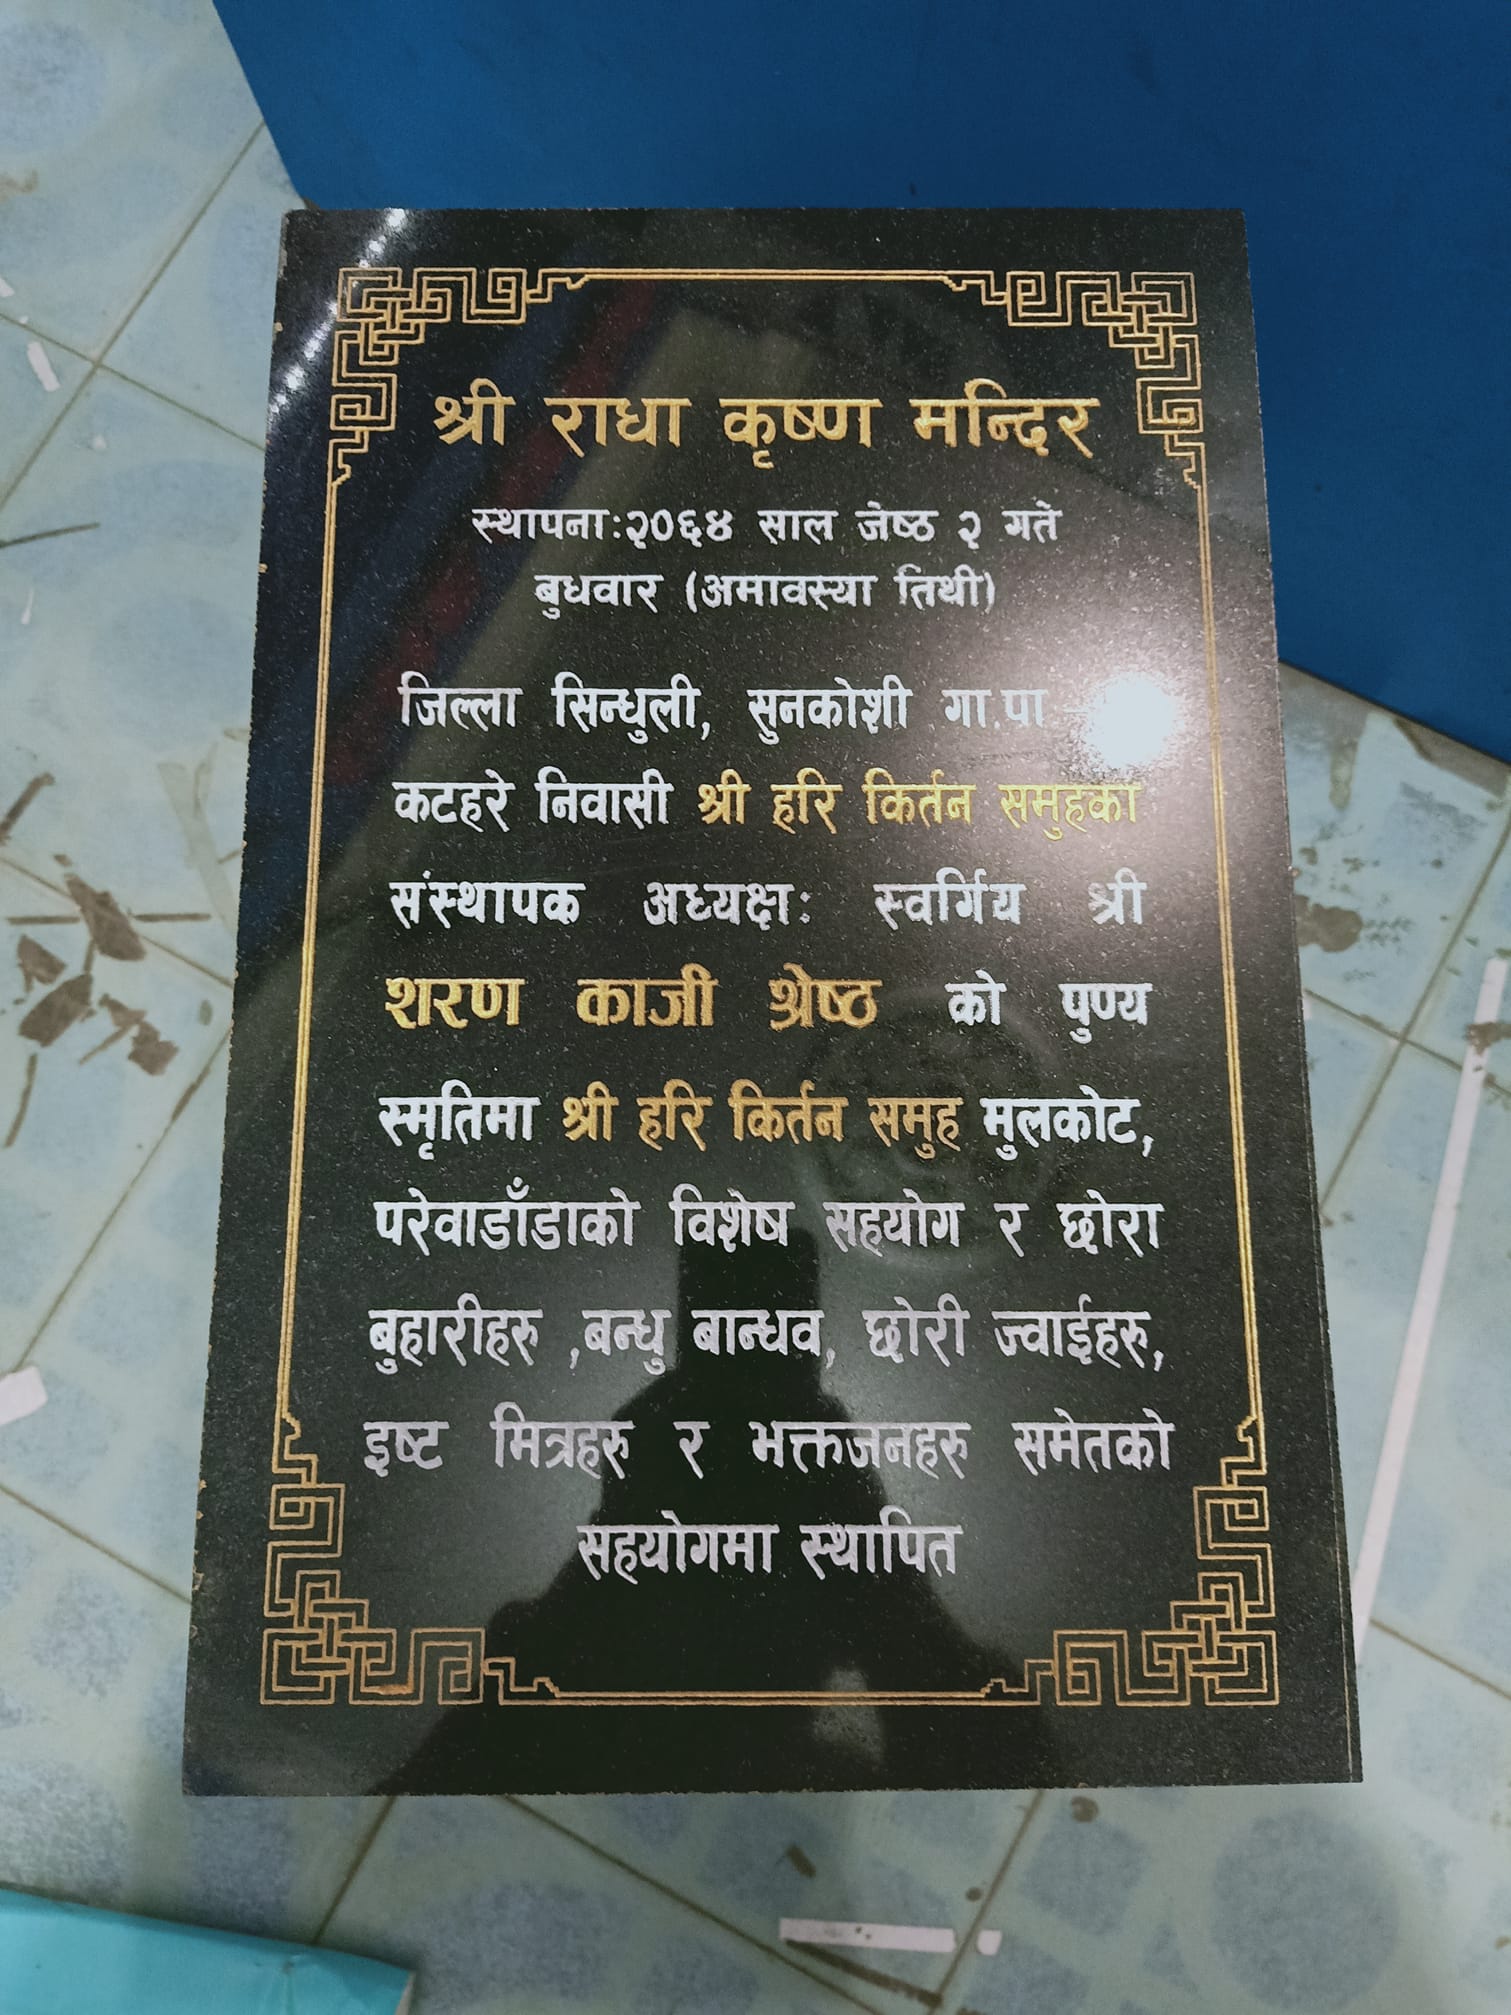 श्री राधा कृष्ण मन्दिर
स्थापना:२०६४ साल जेष्ठ २ गते
बुधवार (अमावस्या तिथी)
जिल्ला सिन्धुली, सुनकोशी गा.पा
कटहरे निवासी श्री हरि किर्तन समुहका
संस्थापक अध्यक्ष: स्वर्गिय श्री
शरण काजी श्रेष्ठ को पुण्य
स्मृतिमा श्री हरि किर्तन समुह मुलकोट,
परेवाडाँडाको विशेष सहयोग र छोरा
बुहारीहरु ,बन्धु बान्धव, छोरी ज्वाईहरु,
इष्ट मित्रहरु र भक्तजनहरु समेतको
सहयोगमा स्थापित